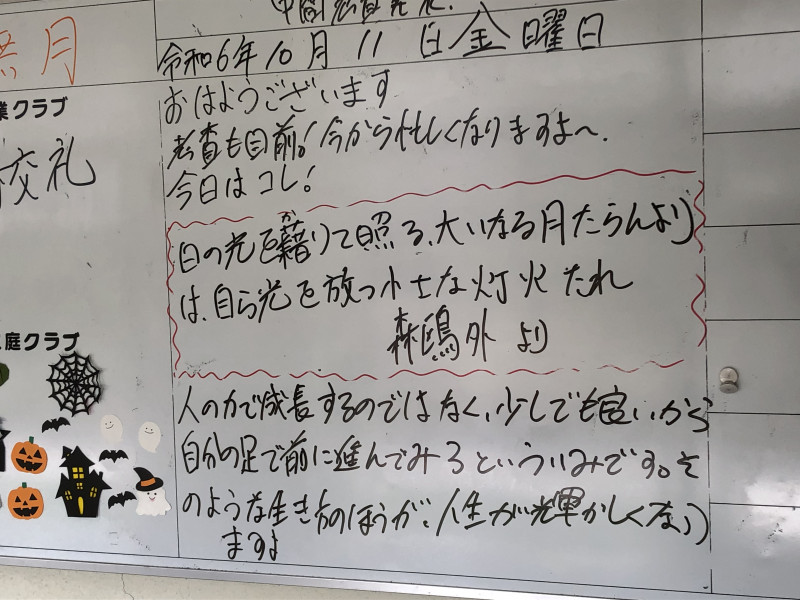 中間考査発表!
令和6年10月11日金曜日
無月
業クラブ
校礼
庭クラブ
おはようございます
考査も目前!今から忙しくなりますよ〜.
今日はコレ!
か
日の光を藉りて照る、大いなる月たらんより
は、自ら光を放つ小さな灯火たれ
森鴎外より
人の力で成長するのではなく、少しでも良いから
自分の足で前に進んでみろといういみです。そ
のような生き方のほうが、人生が輝かしくなり
ますよ